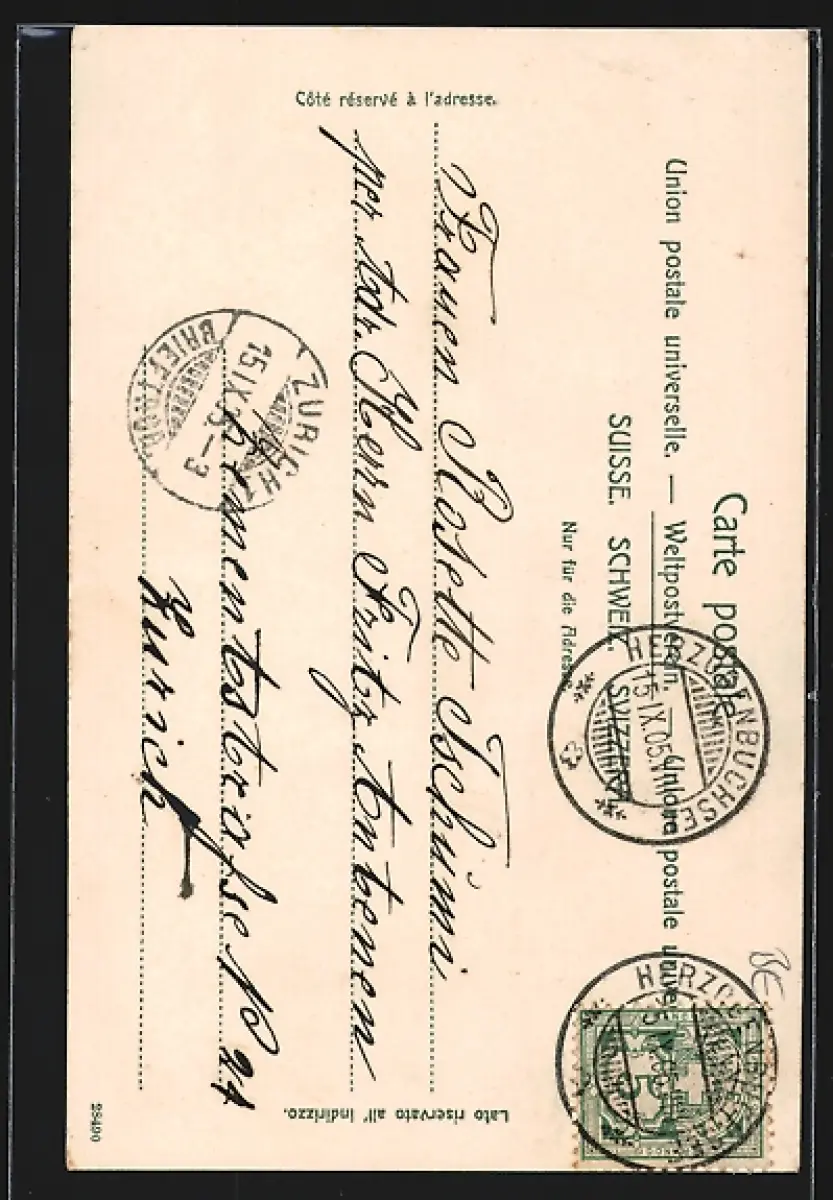 Carte postale
Union postale universelle. — Weltpostverein. — Unione postale universale
SUISSE. SCHWEIZ. SVIZZERA.
Nur für die Adresse.
Côté réservé à l'adresse.
Lato riservato all' indirizzo.
Frauen Rosette Tschümi
per Adr. Herrn Fritz Antenen
Klimentstraße No 24
Zürich
HERZOGENBUCHSEE
15 IX.05
HERZOGENBUCHSEE
ZÜRICH 1
15 IX 05.–3
BRIEFTRÄG.
BE
28490